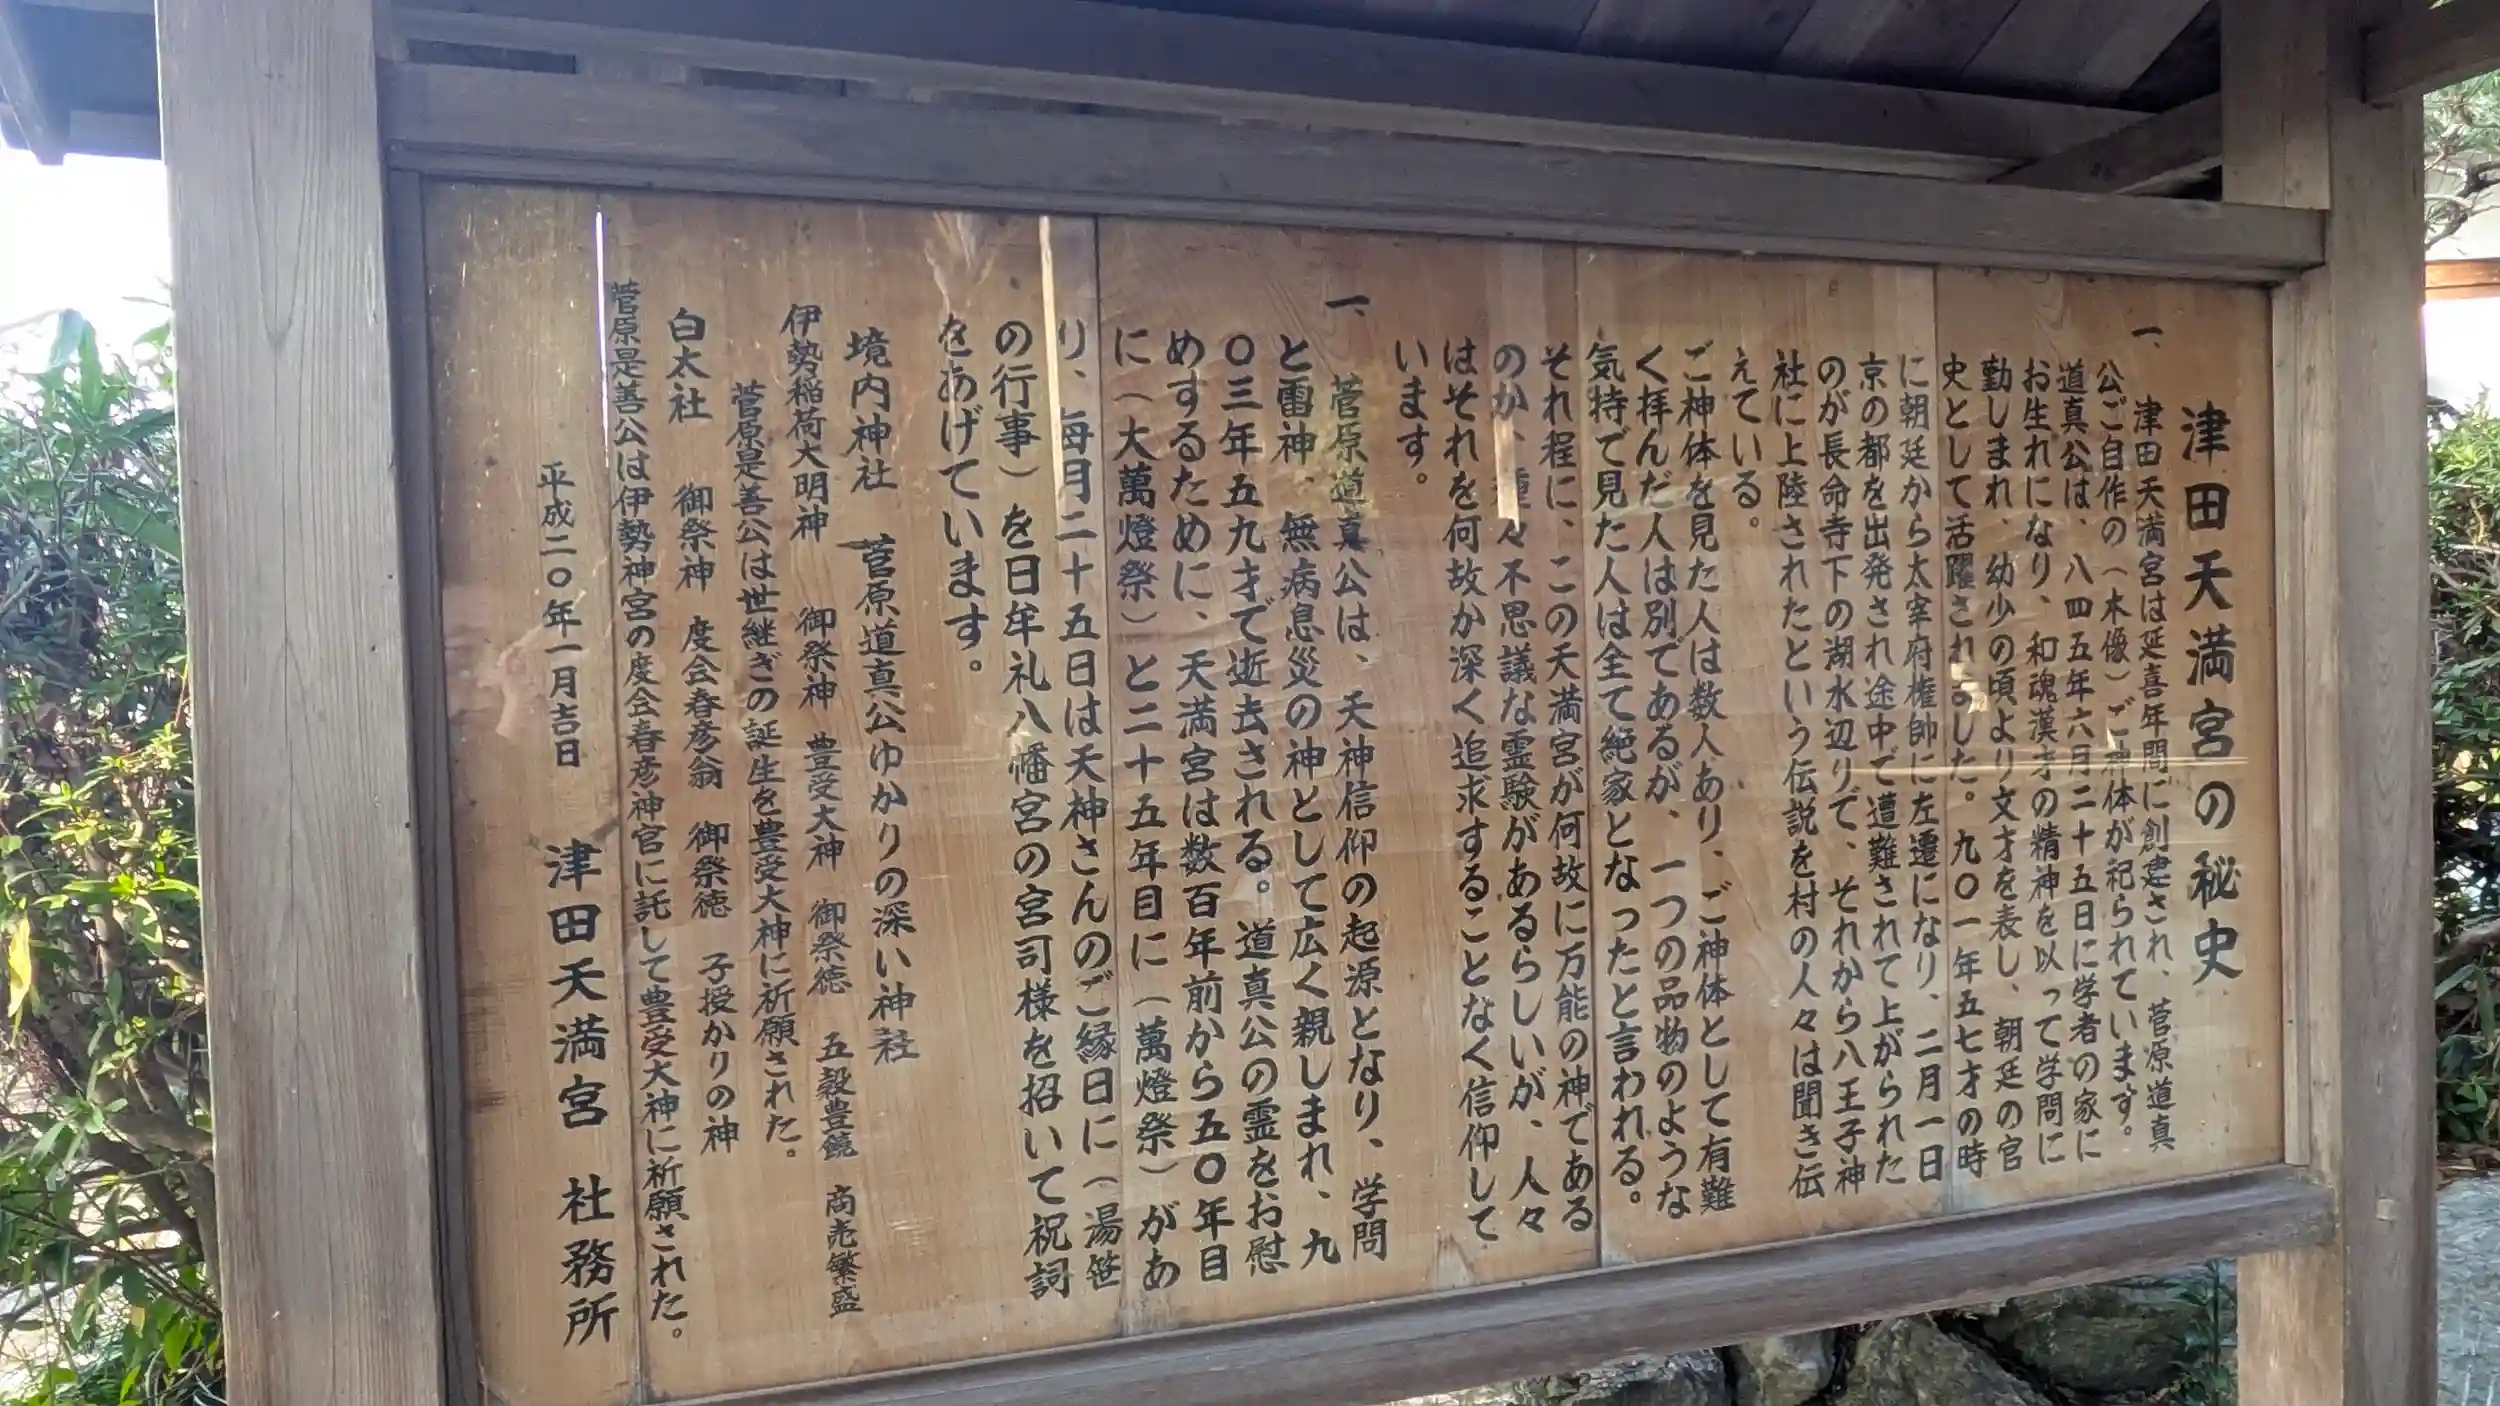 津田天満宮の秘史
一、津田天満宮は延喜年間に創建され、菅原道真
公ご自作の（木像）ご神体が祀られています。
道真公は、八四五年六月二十五日に学者の家に
お生れになり、和魂漢才の精神を以って学問に
勤しまれ、幼少の頃より文才を表し、朝廷の官
史として活躍されました。九〇一年五七才の時
に朝廷から太宰府権帥に左遷になり、二月一日
京の都を出発され途中で遭難されて上がられた
のが長命寺下の湖水辺りで、それから八王子神
社に上陸されたという伝説を村の人々は聞き伝
えている。
ご神体を見た人は数人あり、ご神体として有難
く拝んだ人は別であるが、一つの品物のような
気持で見た人は全て絶家となったと言われる。
それ程に、この天満宮が何故に万能の神である
のか、種々不思議な霊験があるらしいが、人々
はそれを何故か深く追求することなく信仰して
います。
一、菅原道真公は、天神信仰の起源となり、学問
と雷神、無病息災の神として広く親しまれ、九
〇三年五九才で逝去される。道真公の霊をお慰
めするために、天満宮は数百年前から五〇年目
に（大萬燈祭）と二十五年目に（萬燈祭）があ
り、毎月二十五日は天神さんのご縁日に（湯笹
の行事）を日牟礼八幡宮の宮司様を招いて祝詞
をあげています。
境内神社 菅原道真公ゆかりの深い神社
伊勢稲荷大明神 御祭神 豊受大神 御祭徳 五穀豊饒 商売繁盛
菅原是善公は世継ぎの誕生を豊受大神に祈願された。
白太社 御祭神 度会春彦翁 御祭徳 子授かりの神
菅原是善公は伊勢神宮の度会春彦神官に託して豊受大神に祈願された。
平成二〇年一月吉日 津田天満宮 社務所